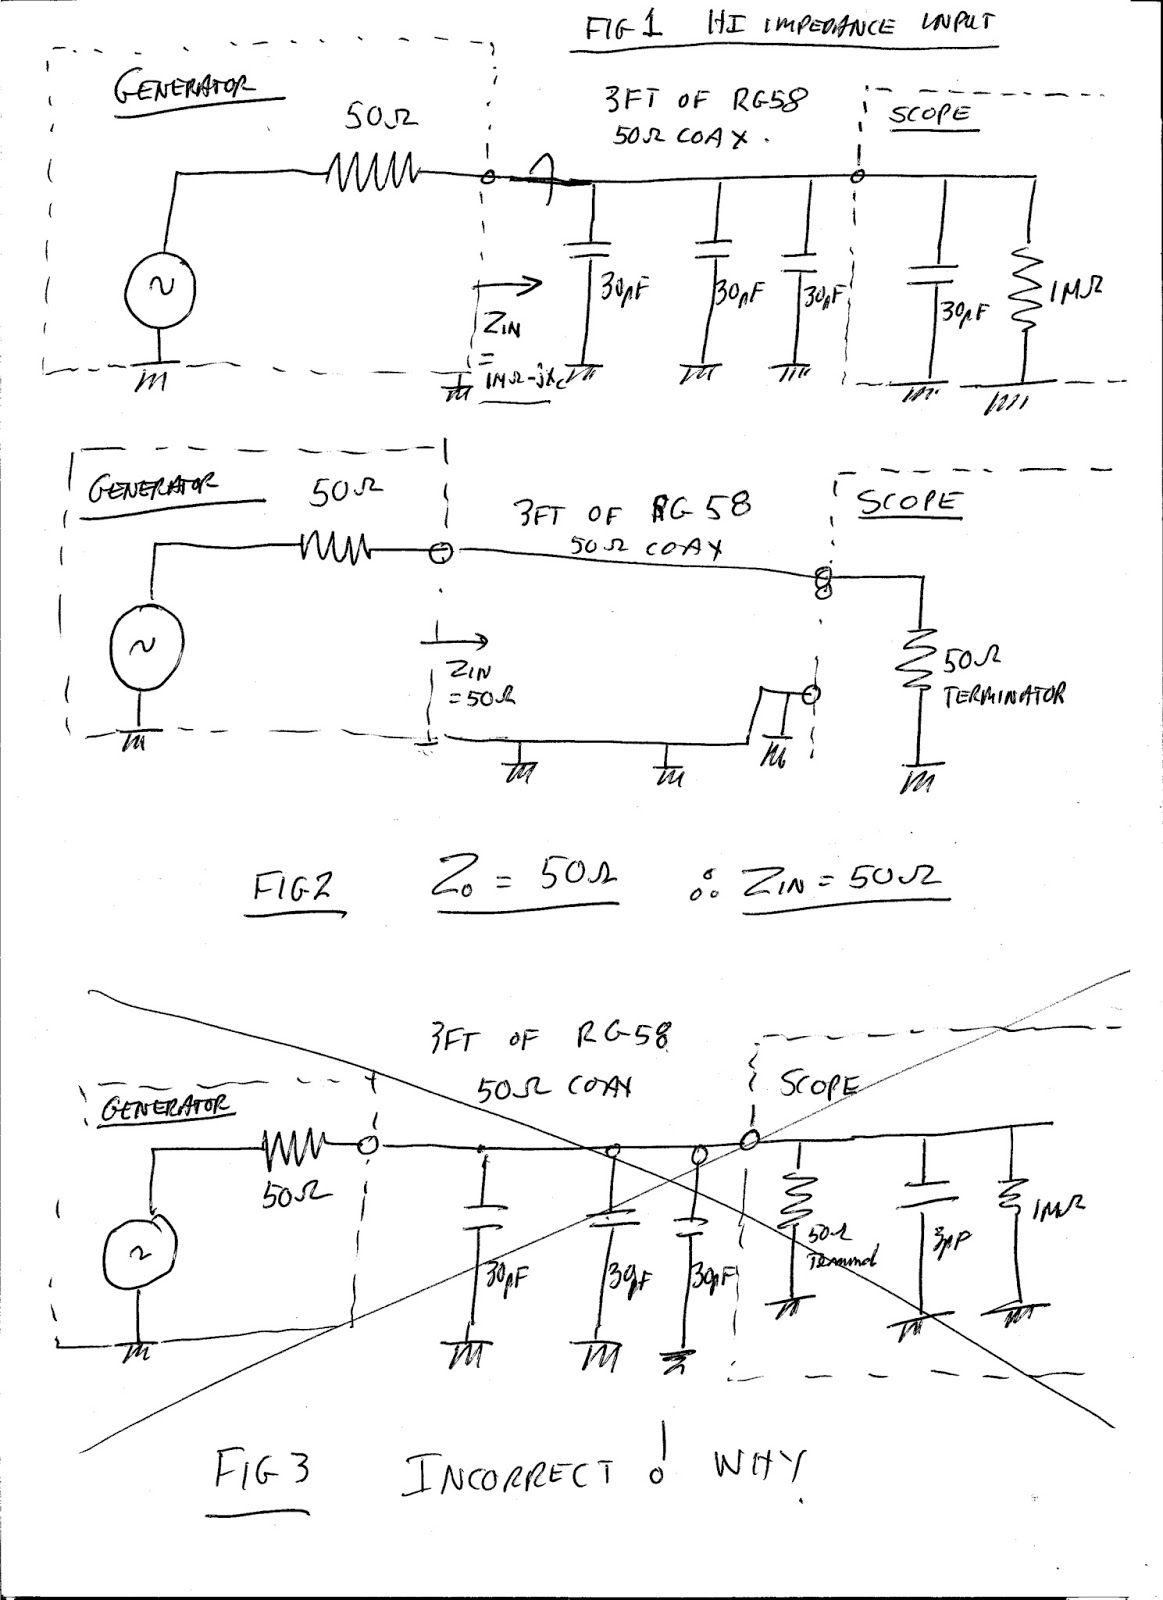 FIG 1 HI IMPEDANCE INPUT
GENERATOR
50Ω
3FT OF RG58
50Ω COAX.
SCOPE
~
30pF
30pF
30pF
30pF
1MΩ
ZIN
=
1MΩ-jXc
GENERATOR
50Ω
3FT OF RG 58
50Ω COAX
SCOPE
~
ZIN
=50Ω
50Ω
TERMINATOR
FIG2 Zo = 50Ω ∴ ZIN = 50Ω
3FT OF RG58
50Ω COAX
SCOPE
GENERATOR
50Ω
~
30pF
30pF
30pF
50Ω
1MΩ
FIG 3 INCORRECT ! WHY